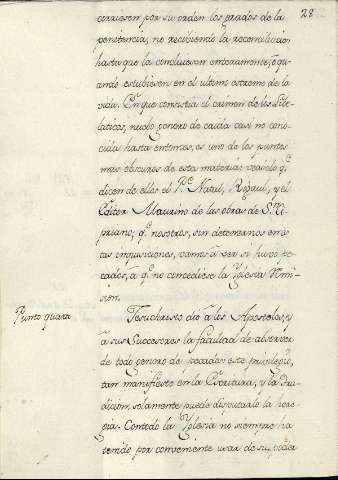 28
corriesen por su orden los grados de la
penitencia; no recibiendo la reconciliacion
hasta que la concluiesen enteramente, ò qu
ando estubiesen en el ultimo estremo de la
vida. En que consistia el crimen de los Libe-
laticos, nuebo genero de caida casi no cono-
cida hasta entonces, es uno de los puntos
mas obscuros de esta materia: vease lo q.e
dicen de ellos el P.e Natal, Rigaul, y el
Editor Maurino de las obras de S.n Ci-
priano; q.e nosotros, sin detenernos en es-
tas inquisiciones, vamos à ver si hubo pe-
cados, à q.e no concediese la Yglesia Remi-
sion.
Punto quarto
Jesuchristo dio à los Apostoles, y
à sus Succesores la facultad de absolver
de todo genero de pecados: este privilegio,
tan manifiesto en la Escritura, y la Tra-
dicion, solamente puede disputarlo la here-
gia. Con todo la Yglesia no siempre ha
tenido por conveniente usar de su poder